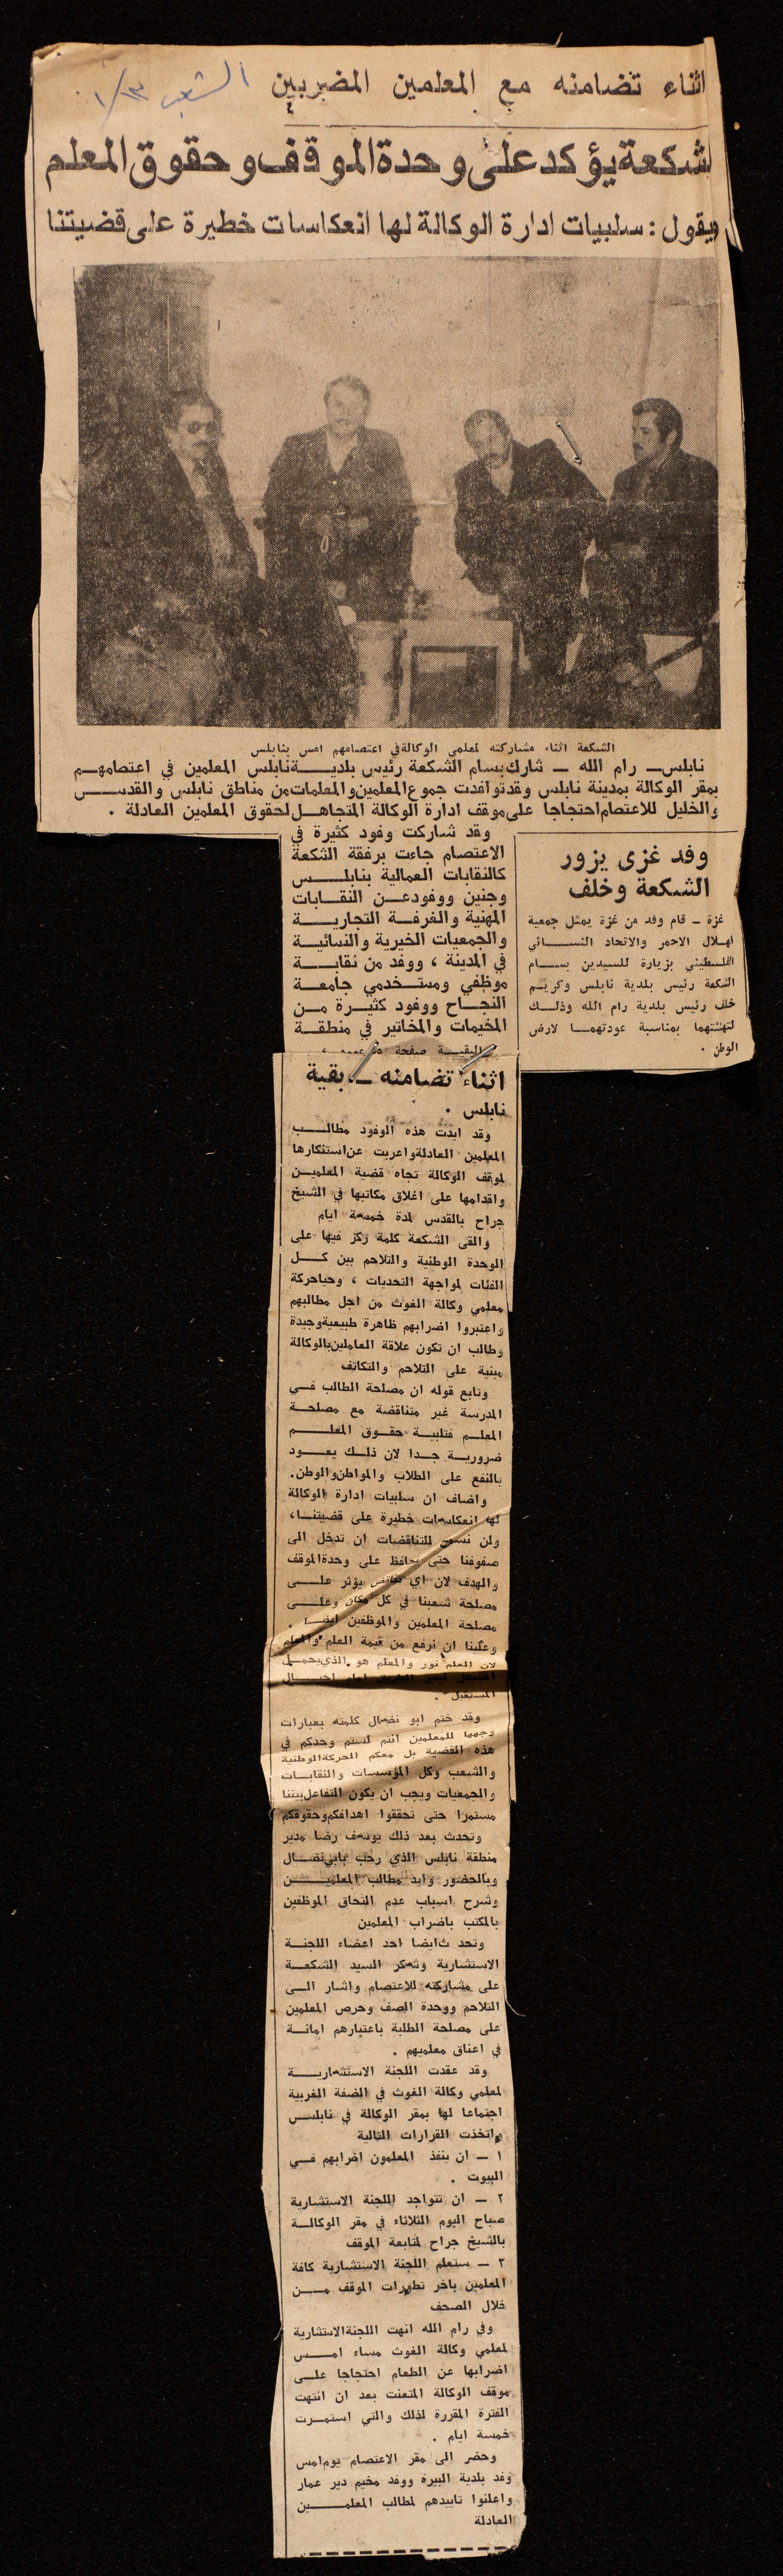 اثناء تضامنه مع المعلمين المضربين
الشعب ١٣/١
لشكعة يؤكد على وحدة الموقف وحقوق المعلم
ويقول : سلبيات ادارة الوكالة لها انعكاسات خطيرة على قضيتنا
الشكعة اثناء مشاركته لمعلمي الوكالة في اعتصامهم امس بنابلس
نابلس ــ رام الله ــ شارك بسام الشكعة رئيس بلدية نابلس المعلمين في اعتصامهم
بمقر الوكالة بمدينة نابلس وقد توافدت جموع المعلمين والمعلمات من مناطق نابلس والقدس
والخليل للاعتصام احتجاجا على موقف ادارة الوكالة المتجاهل لحقوق المعلمين العادلة .
وقد شاركت وفود كثيرة في
الاعتصام جاءت برفقة الشكعة
كالنقابات العمالية بنابلس
وجنين ووفود عن النقابات
المهنية والغرفة التجارية
والجمعيات الخيرية والنسائية
في المدينة ، ووفد من نقابة
موظفي ومستخدمي جامعة
النجاح ووفود كثيرة من
المخيمات والمخاتير في منطقة
البقية صفحة ٥ عمود
وفد غزى يزور
الشكعة وخلف
غزة ــ قام وفد من غزة يمثل جمعية
الهلال الاحمر والاتحاد النسائي
الفلسطيني بزيارة للسيدين بسام
الشكعة رئيس بلدية نابلس وكريم
خلف رئيس بلدية رام الله وذلك
لتهنئتهما بمناسبة عودتهما لارض
الوطن .
اثناء تضامنه ــ بقية
نابلس .
وقد ايدت هذه الوفود مطالب
المعلمين العادلة واعربت عن استنكارها
لموقف الوكالة تجاه قضية المعلمين
واقدامها على اغلاق مكاتبها في الشيخ
جراح بالقدس لمدة خمسة ايام
والقى الشكعة كلمة ركز فيها على
الوحدة الوطنية والتلاحم بين كل
الفئات لمواجهة التحديات ، وحيا حركة
معلمي وكالة الغوث من اجل مطالبهم
واعتبروا اضرابهم ظاهرة طبيعية وجيدة
وطالب ان تكون علاقة العاملين بالوكالة
مبنية على التلاحم والتكاتف
وتابع قوله ان مصلحة الطالب في
المدرسة غير متناقضة مع مصلحة
المعلم فتلبية حقوق المعلم
ضرورية جدا لان ذلك يعود
بالنفع على الطلاب والمواطن والوطن.
واضاف ان سلبيات ادارة الوكالة
لها انعكاسات خطيرة على قضيتنا،
ولن نسمح للتناقضات ان تدخل الى
صفوفنا حتى نحافظ على وحدة الموقف
والهدف لان اي تناقض يؤثر على
مصلحة شعبنا في كل مكان وعلى
مصلحة المعلمين والموظفين ايضا .
وعلينا ان نرفع من قيمة العلم والمعلم
لان العلم نور والمعلم هو الذي يحمل
المشعل لينير الطريق امام اجيال
المستقبل .
وقد ختم ابو نضال كلمته بعبارات
وجهها للمعلمين انتم لستم وحدكم في
هذه القضية بل معكم الحركة الوطنية
والشعب وكل المؤسسات والنقابات
والجمعيات ويجب ان يكون التفاعل بيننا
مستمرا حتى تحققوا اهدافكم وحقوقكم
وتحدث بعد ذلك يوسف رضا مدير
منطقة نابلس الذي رحب بابي نضال
وبالحضور وايد مطالب المعلمين
وشرح اسباب عدم التحاق الموظفين
بالمكتب باضراب المعلمين
وتحد ث ايضا احد اعضاء اللجنة
الاستشارية وشكر السيد الشكعة
على مشاركته للاعتصام واشار الى
التلاحم ووحدة الصف وحرص المعلمين
على مصلحة الطلبة باعتبارهم امانة
في اعناق معلميهم .
وقد عقدت اللجنة الاستشارية
لمعلمي وكالة الغوث في الضفة الغربية
اجتماعا لها بمقر الوكالة في نابلس
واتخذت القرارات التالية
١ ــ ان ينفذ المعلمون اضرابهم في
البيوت .
٢ ــ ان تتواجد اللجنة الاستشارية
صباح اليوم الثلاثاء في مقر الوكالة
بالشيخ جراح لمتابعة الموقف
٣ ــ ستعلم اللجنة الاستشارية كافة
المعلمين باخر تطورات الموقف من
خلال الصحف
وفي رام الله انهت اللجنة الاستشارية
لمعلمي وكالة الغوث مساء امس
اضرابها عن الطعام احتجاجا على
موقف الوكالة المتعنت بعد ان انتهت
الفترة المقررة لذلك والتي استمرت
خمسة ايام .
وحضر الى مقر الاعتصام يوم امس
وفد بلدية البيرة ووفد مخيم دير عمار
واعلنوا تاييدهم لمطالب المعلمين
العادلة